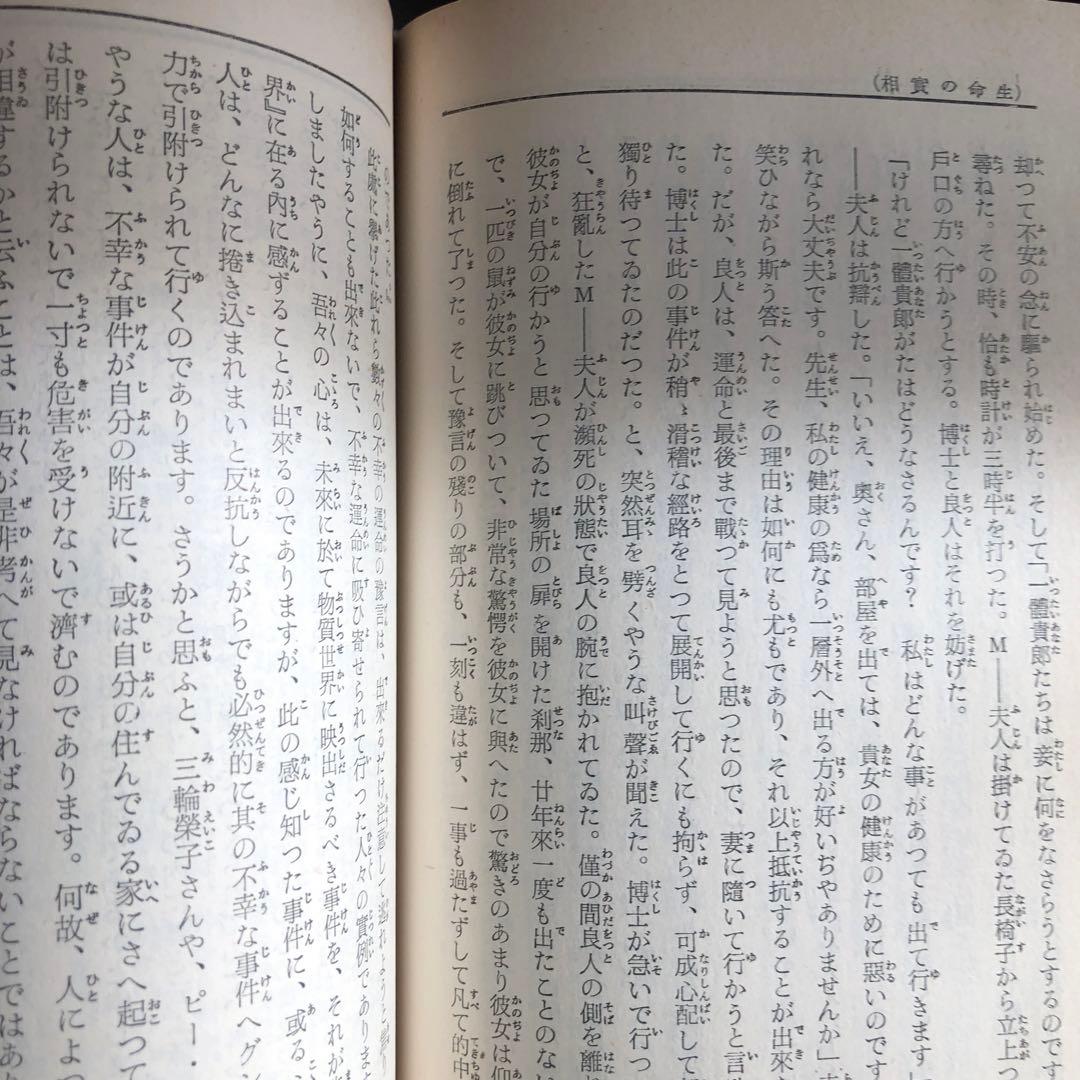 (生命の實相)
却つて不安の念に驅られ始めた。そして「一體貴郎たちは妾に何をなさらうとするのです
尋ねた。その時、恰も時計が三時半を打つた。M――夫人は掛けてゐた長椅子から立上つ
戸口の方へ行かうとする。博士と良人はそれを妨げた。
「けれど一體貴郎がたはどうなさるんです? 私はどんな事があつても出て行きます」
――夫人は抗辯した。「いいえ、奥さん、部屋を出ては、貴女の健康のために惡いのです
れなら大丈夫です。先生、私の健康の爲なら一層外へ出る方が好いぢやありませんか」
笑ひながら斯う答へた。その理由は如何にも尤もであり、それ以上抵抗することが出來
た。だが、良人は、運命と最後まで戰つて見ようと思つたので、妻に隨いて行かうと言
た。博士は此の事件が稍〻滑稽な經路をとつて展開して行くにも拘らず、可成心配して
獨り待つてゐたのだつた。と、突然耳を劈くやうな叫聲が聞えた。博士が急いで行つ
と、狂亂したM――夫人が瀕死の狀態で良人の腕に抱かれてゐた。僅の間良人の側を離れ
彼女が自分の行かうと思つてゐた場所の扉を開けた刹那、廿年來一度も出たことのない
で、一匹の鼠が彼女に跳びついて、非常な驚愕を彼女に與へたので驚きのあまり彼女は仰
に倒れて了つた。そして豫言の殘りの部分も、一刻も違はず、一事も過たずして凡て的中
のであつた
此處に擧げた此れら數々の不幸の運命の豫言は、出來るだけ注意して逃れようと
如何することも出來ないで、不幸な運命に吸ひ寄せられて行つた人々の實例でありま
しましたやうに、吾々の心は、未來に於て物質世界に映出さるべき事件を、それが
界』に在る内に感ずることが出來るのでありますが、此の感じ知つた事件に、或る
人は、どんなに捲き込まれまいと反抗しながらでも必然的に其の不幸な事件へグ
力で引附けられて行くのであります。さうかと思ふと、三輪榮子さんや、ピー・
やうな人は、不幸な事件が自分の附近に、或は自分の住んでゐる家にさへ起つて
は引附けられないで一寸も危害を受けないで濟むのであります。何故、人によつ
が相違するかと云ふことは、吾々が是非考へて見なければならないことではあ